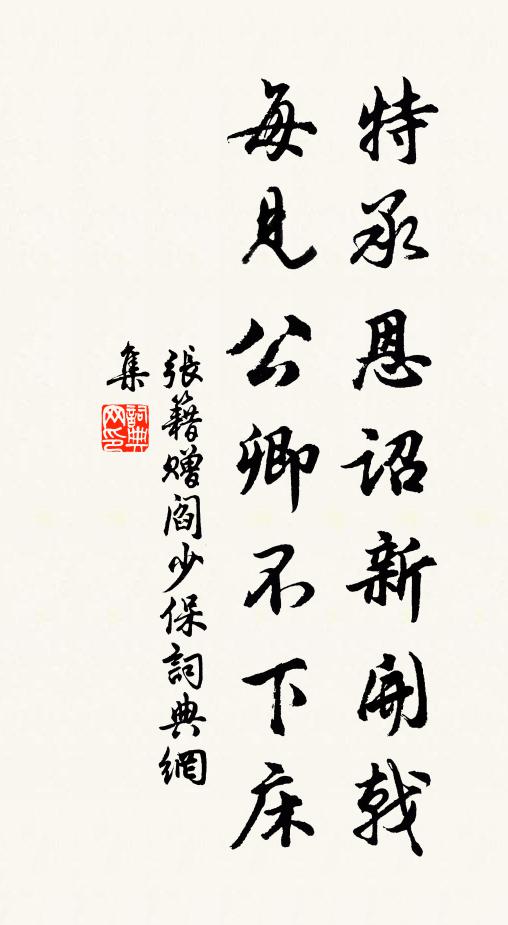 特承恩詔新開戟
每見公卿不下床
張籍贈閻少保詞典網
集
詞典
网印